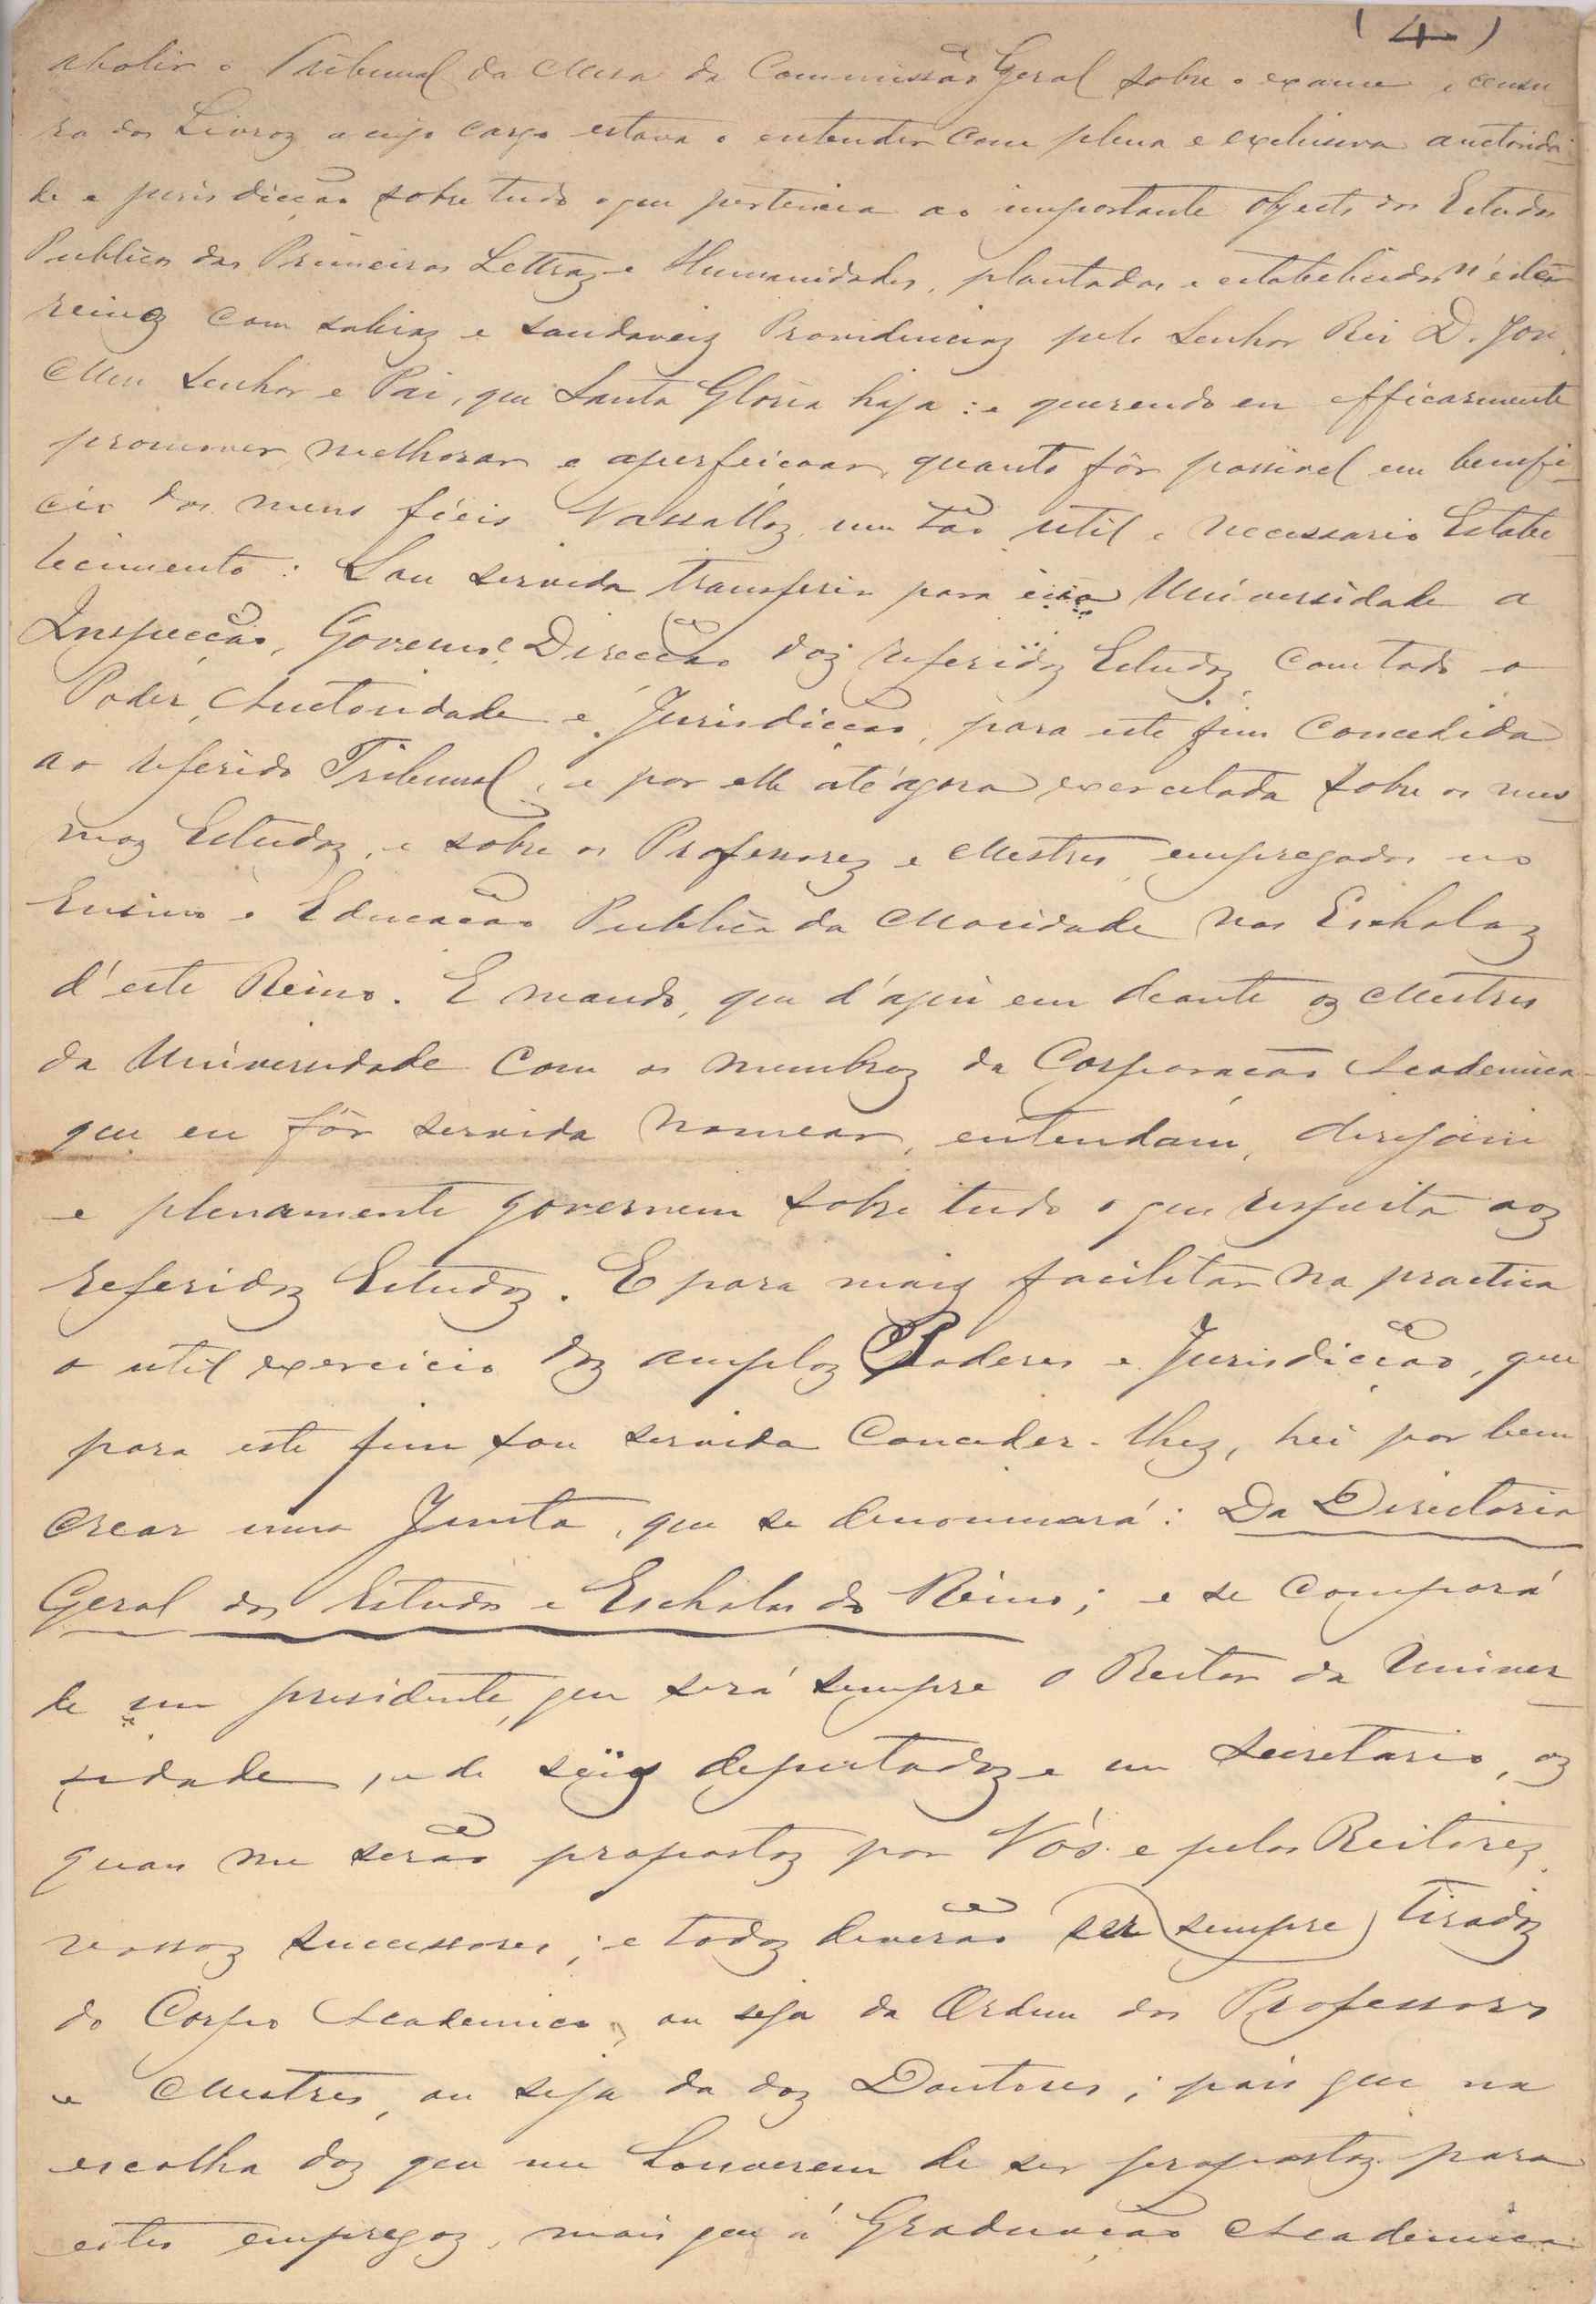 (4)
abolir o Tribunal da Mesa da Commissão Geral sobre o exame e censu
ra dos Livroz a cujo cargo estava o entender com plena e exclusiva auctorida-
de e jurisdicção sobre tudo o que pertencia ao importante objecto dos Estudos
Publicos das Primeiras Lettraz e Humanidades, plantados e estabelecidos n'estes
reinoz com sabiaz e saudaveiz Providenciaz pelo Senhor Rei D. José,
Meu Senhor e Pai, que Santa Gloria haja: e querendo eu efficazmente
promover, melhorar e aperfeiçoar, quanto fôr possivel em benefi-
cio dos meus fieis Vassalloz, um tão util e necessario Estabe-
lecimento: Sou servida transferir para essa Universidade a
Inspecção, Governo e Direcção doz referidoz Estudoz com todo o
Poder, Auctoridade e Jurisdicção, para este fim concedida
ao referido Tribunal, e por elle até'agora exercitada sobre os mes-
moz Estudoz, e sobre os Professorez e Mestres empregados no
Ensino e Educação Publica da Mocidade nas Escholaz
d'este Reino. E mando, que d'aqui em deante oz Mestres
da Universidade com os membroz da Corporação Academica
que eu fôr servida nomear, entendam, dirijam
e plenamente governem sobre tudo o que respeita aoz
referidoz Estudoz. E para maiz facilitar na practica
o util exercicio doz amploz Poderes e Jurisdicção, que
para este fim sou servida conceder-lhez, hei por bem
crear uma Junta, que se denominará: Da Directoria
Geral dos Estudos e Escholas do Reino; e se comporá
de um presidente, que será sempre o Reitor da Univer
sidade, e de seis deputadoz e um Secretario, oz
quaes me serão propostoz por Vós e pelos Reitorez
vossoz successores; e todoz deverão ser sempre tiradoz
do Corpo Academico, ou seja da Ordem dos Professores
e Mestres, ou seja da doz Doutores; pois que na
escolha doz que me houverem de ser propostoz para
estes empregoz, mais que á Graduação Academica